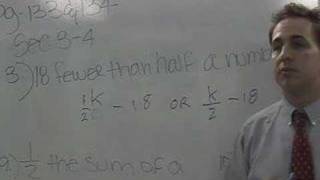 pg. 133 & 134-
Sec 3-4
3) 18 fewer than half a num
1/2 k - 18 OR k/2 - 18
9.) 1/2 the sum of a